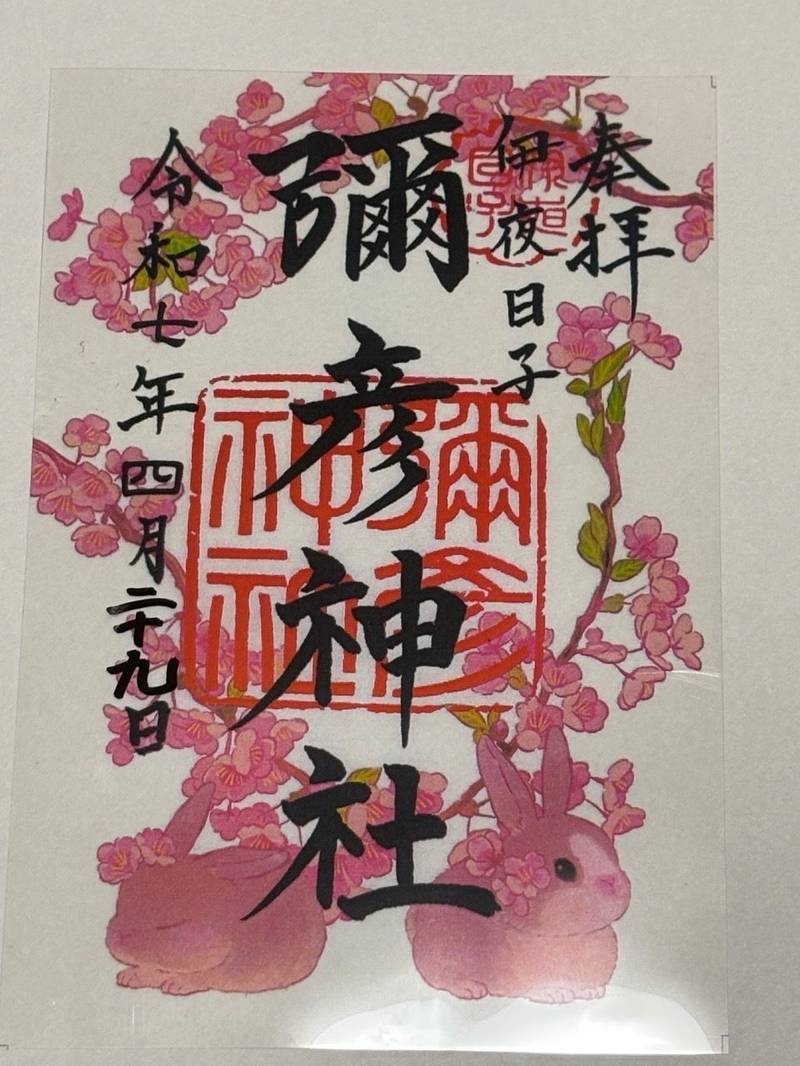 奉拝
伊夜日子
彌彦神社
令和七年四月二十九日
彌彦
神社